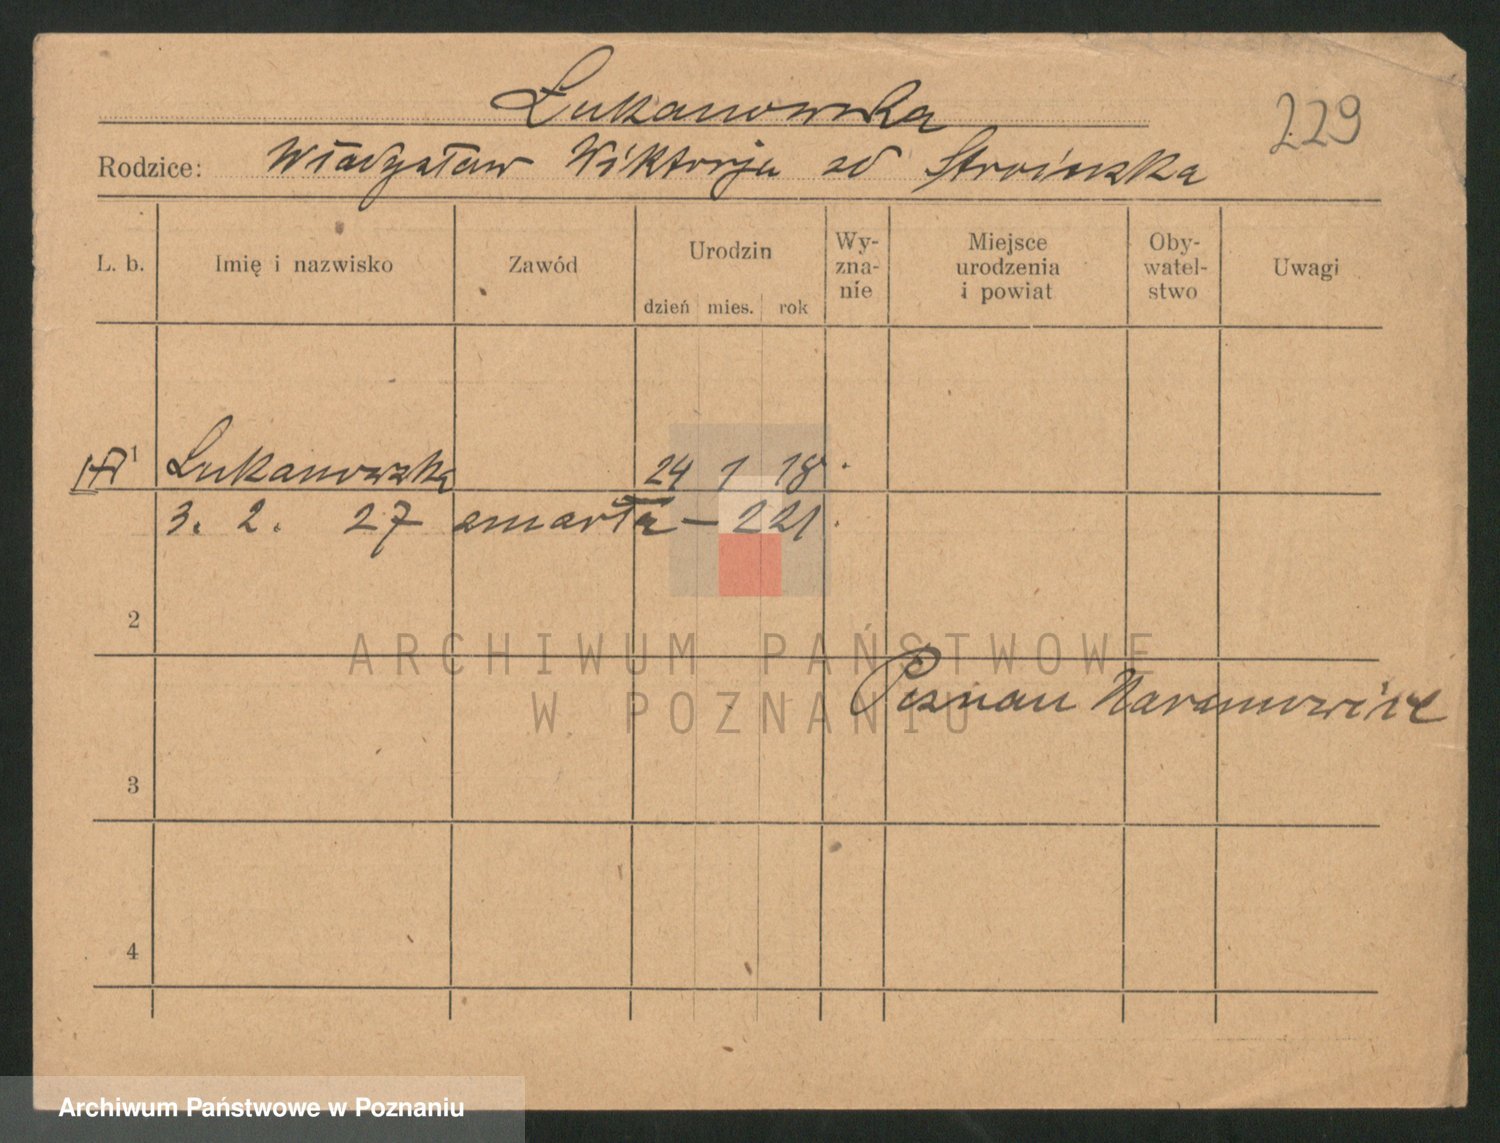 Łukanowska
229
Rodzice: Władysław Wiktorja zd Stroińska
L. b. Imię i nazwisko Zawód Urodzin Wy-zna-nie Miejsce urodzenia i powiat Oby-watel-stwo Uwagi
dzień mies. rok
1 Łukanowska 24 1 18.
3. 2. 27 zmarła — 221.
2
ARCHIWUM PAŃSTWOWE
W POZNANIU
Poznan
3
4
Archiwum Państwowe w Poznaniu